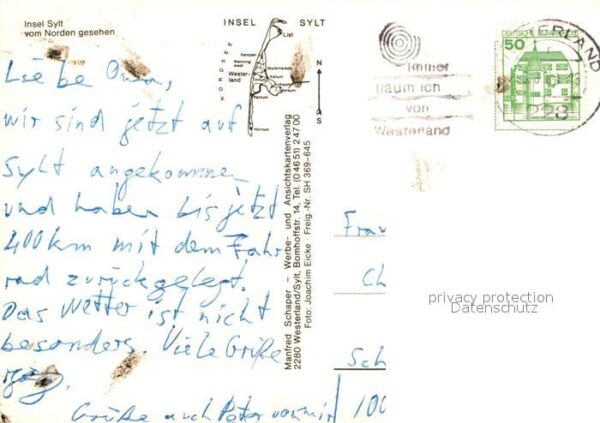 Insel Sylt
vom Norden gesehen
INSEL SYLT
NORDSEE
List
Kampen
Wenning-
stedt
Wester-
land
Keitum
N
S
Liebe Oma,
wir sind jetzt auf
Sylt angekommen
und haben bis jetzt
400 km mit dem Fahr
rad zurückgelegt.
Das Wetter ist nicht
besonders. Viele Grüße
Grüße auch Peter von mir
Manfred Schaper – Werbe- und Ansichtskartenverlag
2280 Westerland/Sylt, Bomhoffstr. 14, Tel. (0 46 51) 2 47 00
Foto: Joachim Eicke Freig.-Nr. SH 369-645
immer
träum ich
von
Westerland
DEUTSCHE BUNDESPOST
50
TERLAND
228
Frau
Ch
privacy protection
Datenschutz
Sch
100